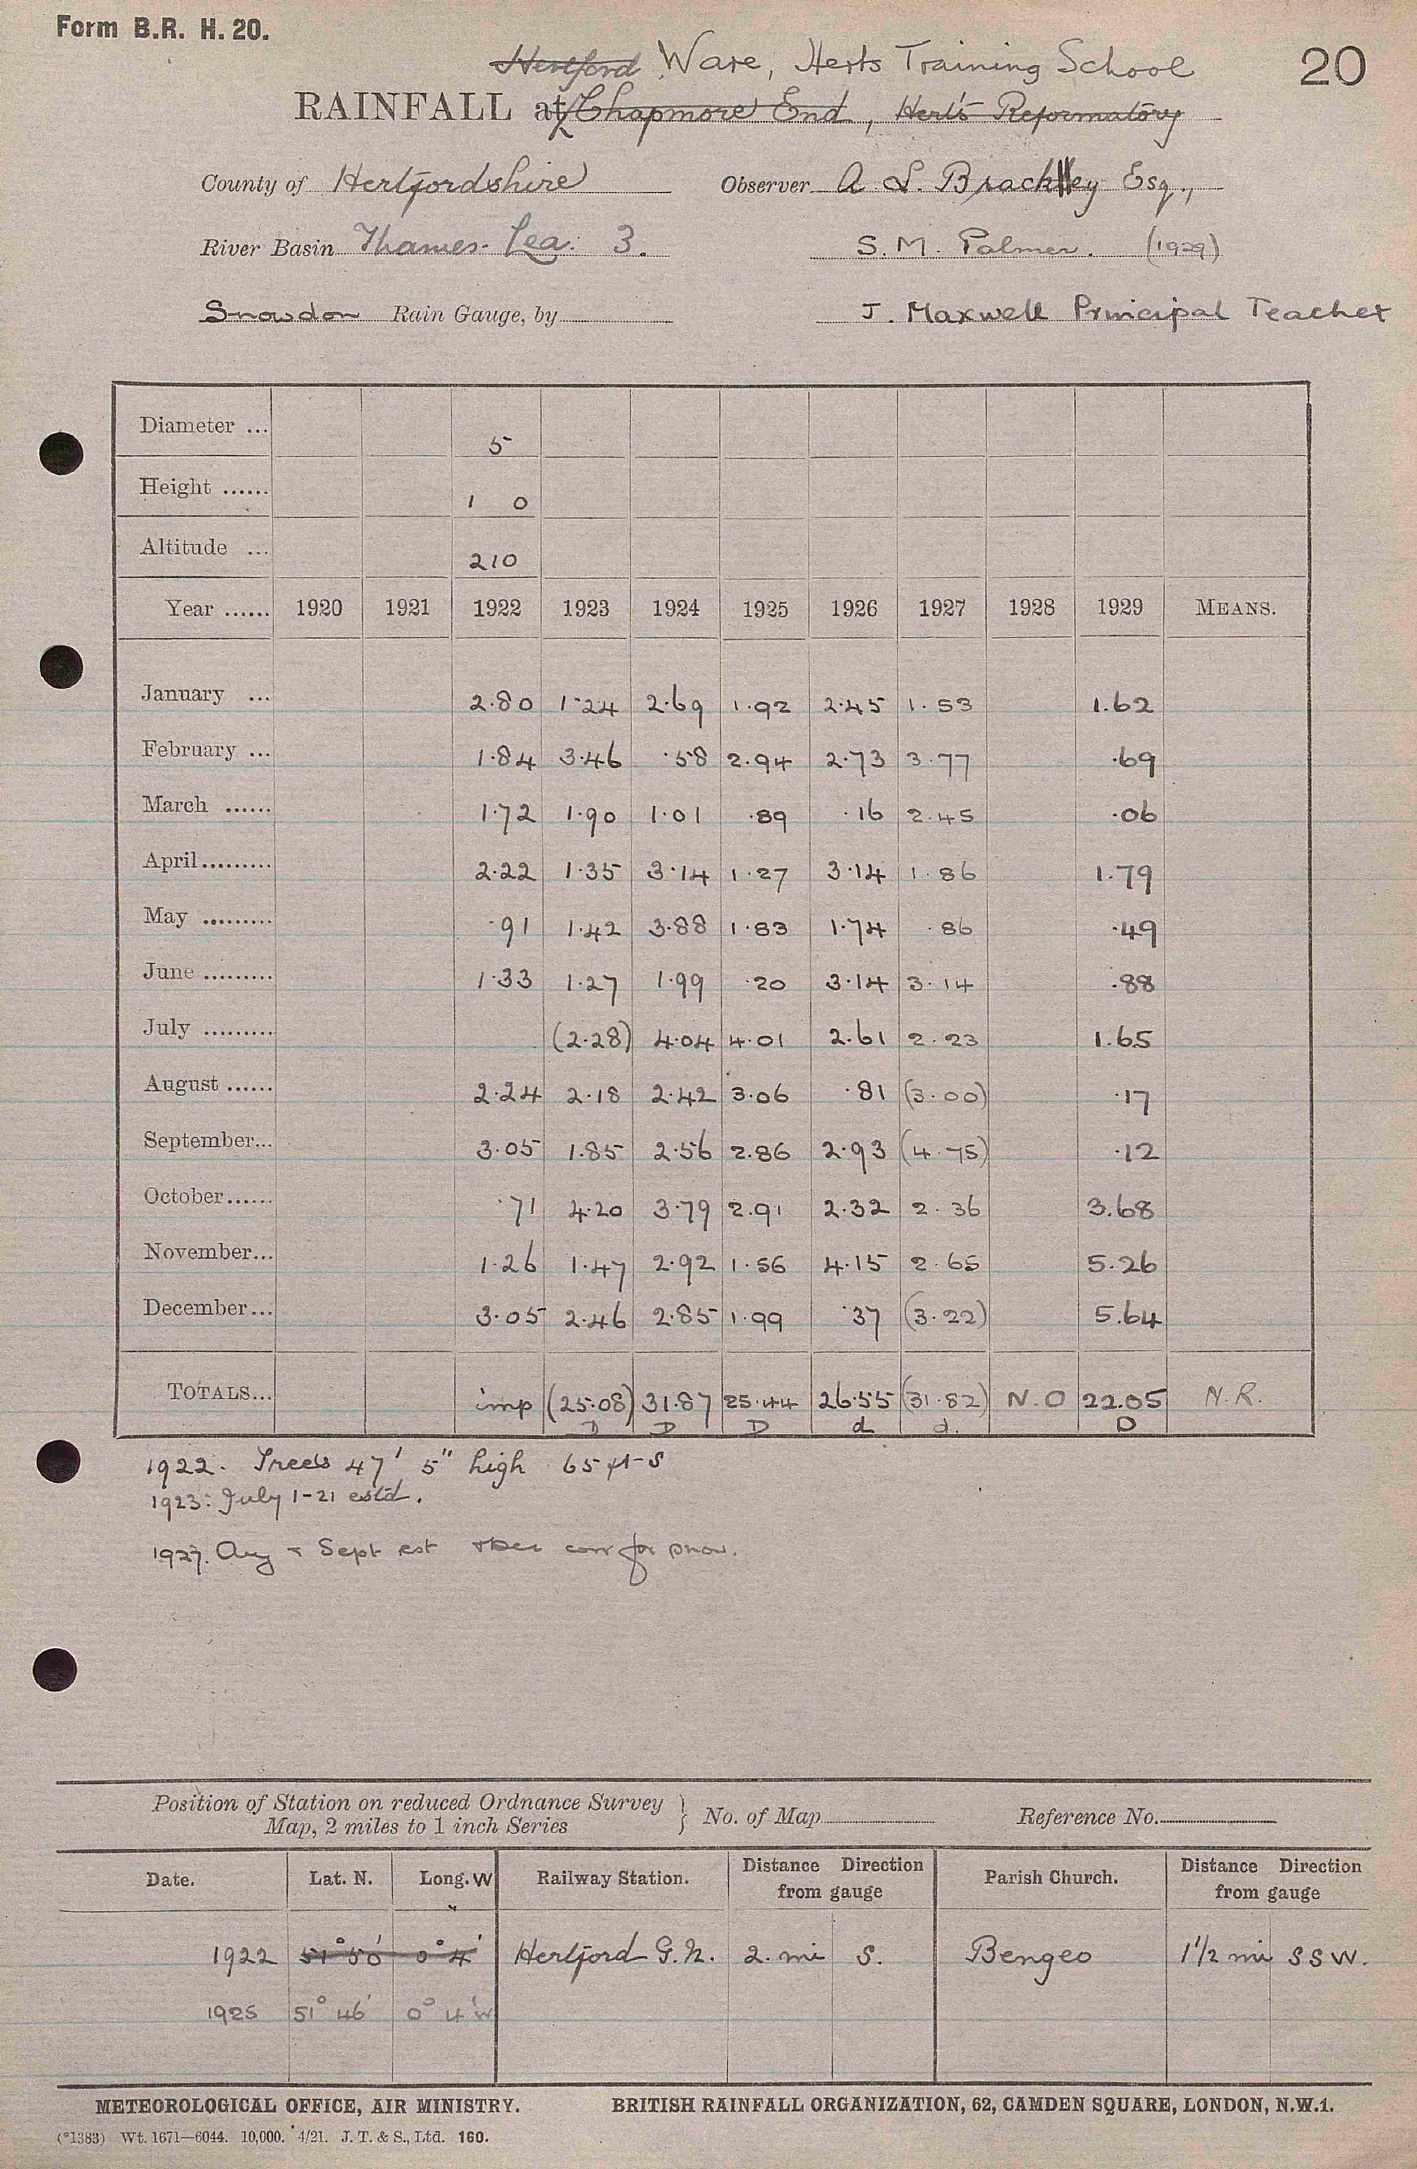 Form B.R. H. 20.
20
Hertford Ware, Herts Training School
RAINFALL at Chapmore End, Herts Reformatory
County of Hertfordshire Observer A. L. Brackley Esq.,
River Basin Thames. Lea: 3. S. M. Palmer. (1929)
Snowdon Rain Gauge, by J. Maxwell Principal Teacher
Diameter ... 5
Height ...... 1 0
Altitude ... 210
Year ...... 1920 1921 1922 1923 1924 1925 1926 1927 1928 1929 MEANS.
January ... 2.80 1.24 2.69 1.92 2.45 1.53 1.62
February ... 1.84 3.46 .58 2.94 2.73 3.77 .69
March ...... 1.72 1.90 1.01 .89 .16 2.45 .06
April......... 2.22 1.35 3.14 1.27 3.14 1.86 1.79
May ......... .91 1.42 3.88 1.83 1.74 .86 .49
June ......... 1.33 1.27 1.99 .20 3.14 3.14 .88
July ......... (2.28) 4.04 4.01 2.61 2.23 1.65
August ...... 2.24 2.18 2.42 3.06 .81 (3.00) .17
September... 3.05 1.85 2.56 2.86 2.93 (4.75) .12
October...... .71 4.20 3.79 2.91 2.32 2.36 3.68
November... 1.26 1.47 2.92 1.56 4.15 2.65 5.26
December... 3.05 2.46 2.85 1.99 .37 (3.22) 5.64
TOTALS... imp (25.08) 31.87 25.44 26.55 (31.82) N.O 22.05 N.R.
D D D d d. D
1922. Trees 47' 5" high 65 ft S
1923: July 1-21 estd.
1927. Aug & Sept est & Dec corr for snow.
Position of Station on reduced Ordnance Survey
Map, 2 miles to 1 inch Series } No. of Map Reference No.
Date. Lat. N. Long. W Railway Station. Distance Direction from gauge Parish Church. Distance Direction from gauge
1922 51° 50' 0° 4' Hertford G.N. 2. mi S. Bengeo 1½ mi SSW.
1925 51° 46' 0° 4' W
METEOROLOGICAL OFFICE, AIR MINISTRY. BRITISH RAINFALL ORGANIZATION, 62, CAMDEN SQUARE, LONDON, N.W.1.
(*1383) Wt. 1671—6044. 10,000. 4/21. J. T. & S., Ltd. 160.